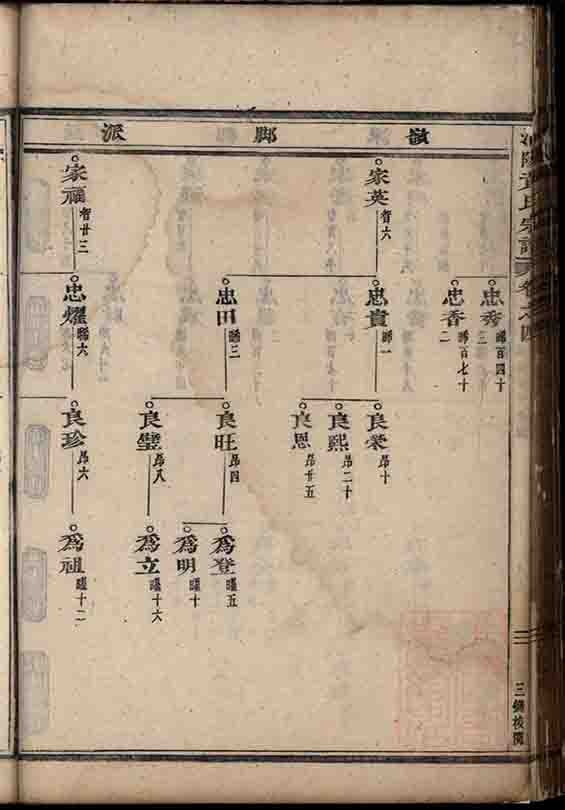 嶺腳派
忠秀 晞百四十三
忠香 晞百七十二
家英 智六
忠貴 晞一
良榮 昂十
良熙 昂二十
良恩 昂廿五
忠田 晞三
良旺 昂四
為登 曜五
為明 曜十
良璧 昂八
為立 曜十六
家福 智廿三
忠燿 晞六
良珍 昂六
為祖 曜十二